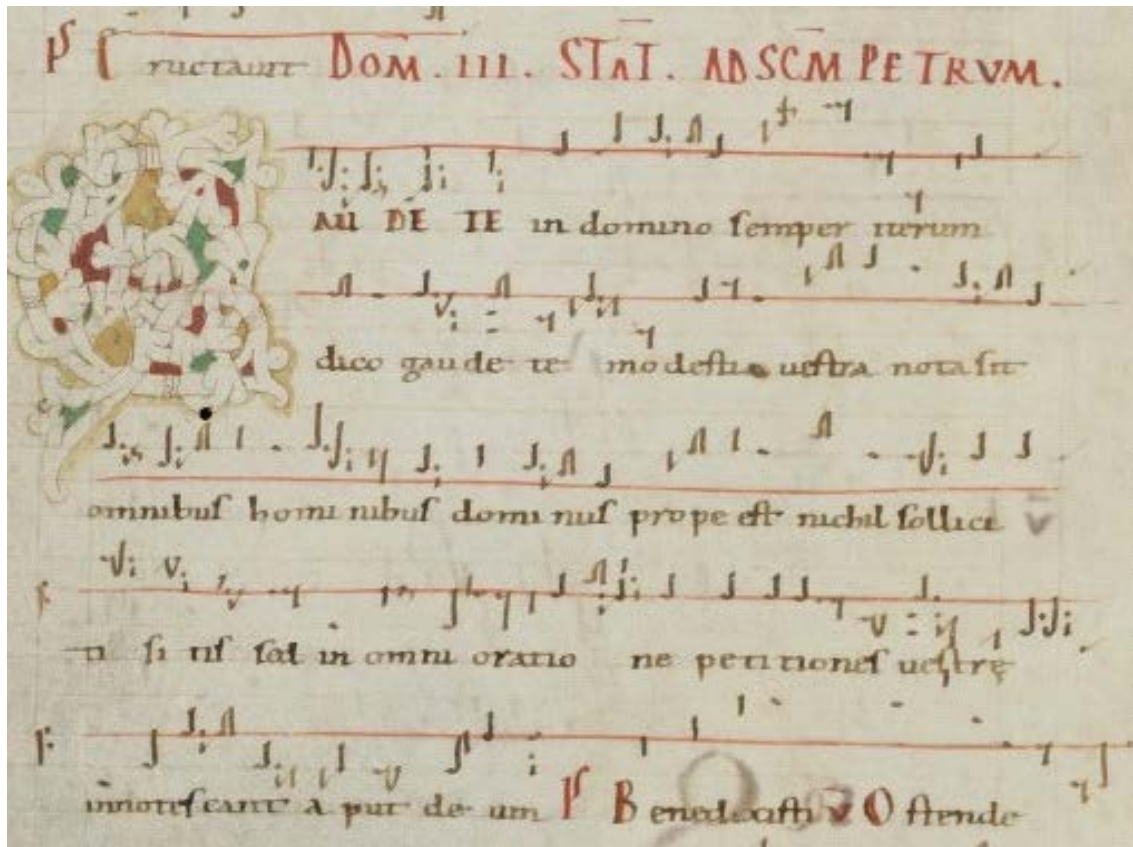 PS Eructauit DOM . III . STAT . AD SCM PETRVM .
GAUDETE in domino semper iterum
dico gaudete modestia uestra nota sit
omnibus hominibus dominus prope est nichil sollici
ti sitis sed in omni oratione petitiones uestrę
innotescant aput deum PS Benedixisti V Ostende